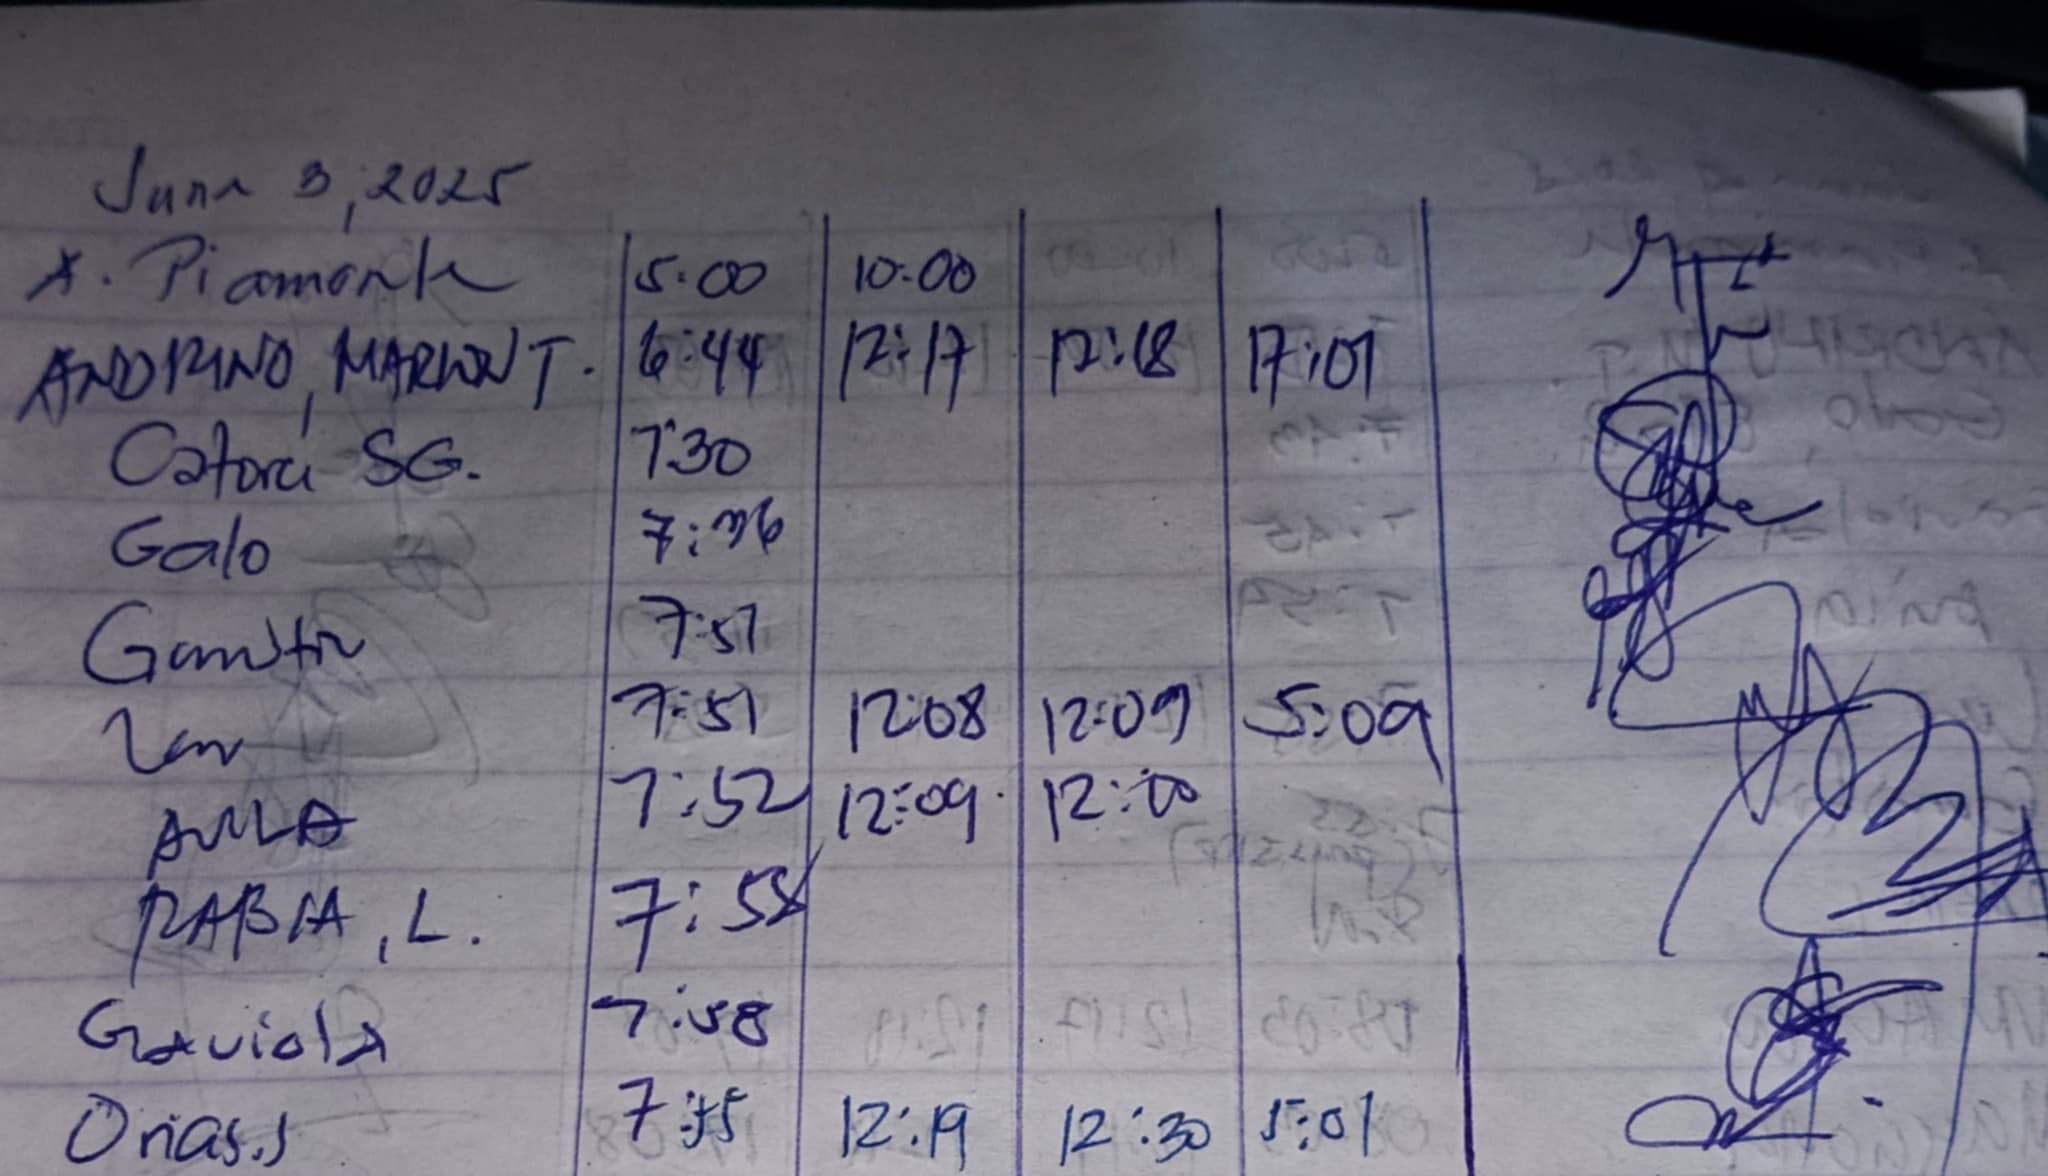 June 3, 2025
X. Piamonte 5:00 10:00
ANDRINO, MARLON T. 6:44 12:17 12:18 17:01
Catora SG. 7:30
Galo 7:36
7:51
7:51 12:08 12:09 5:09
7:52 12:09
RABIA, L. 7:58
Gaviola 7:58
Orias.s 7:55 12:19 12:30 5:01